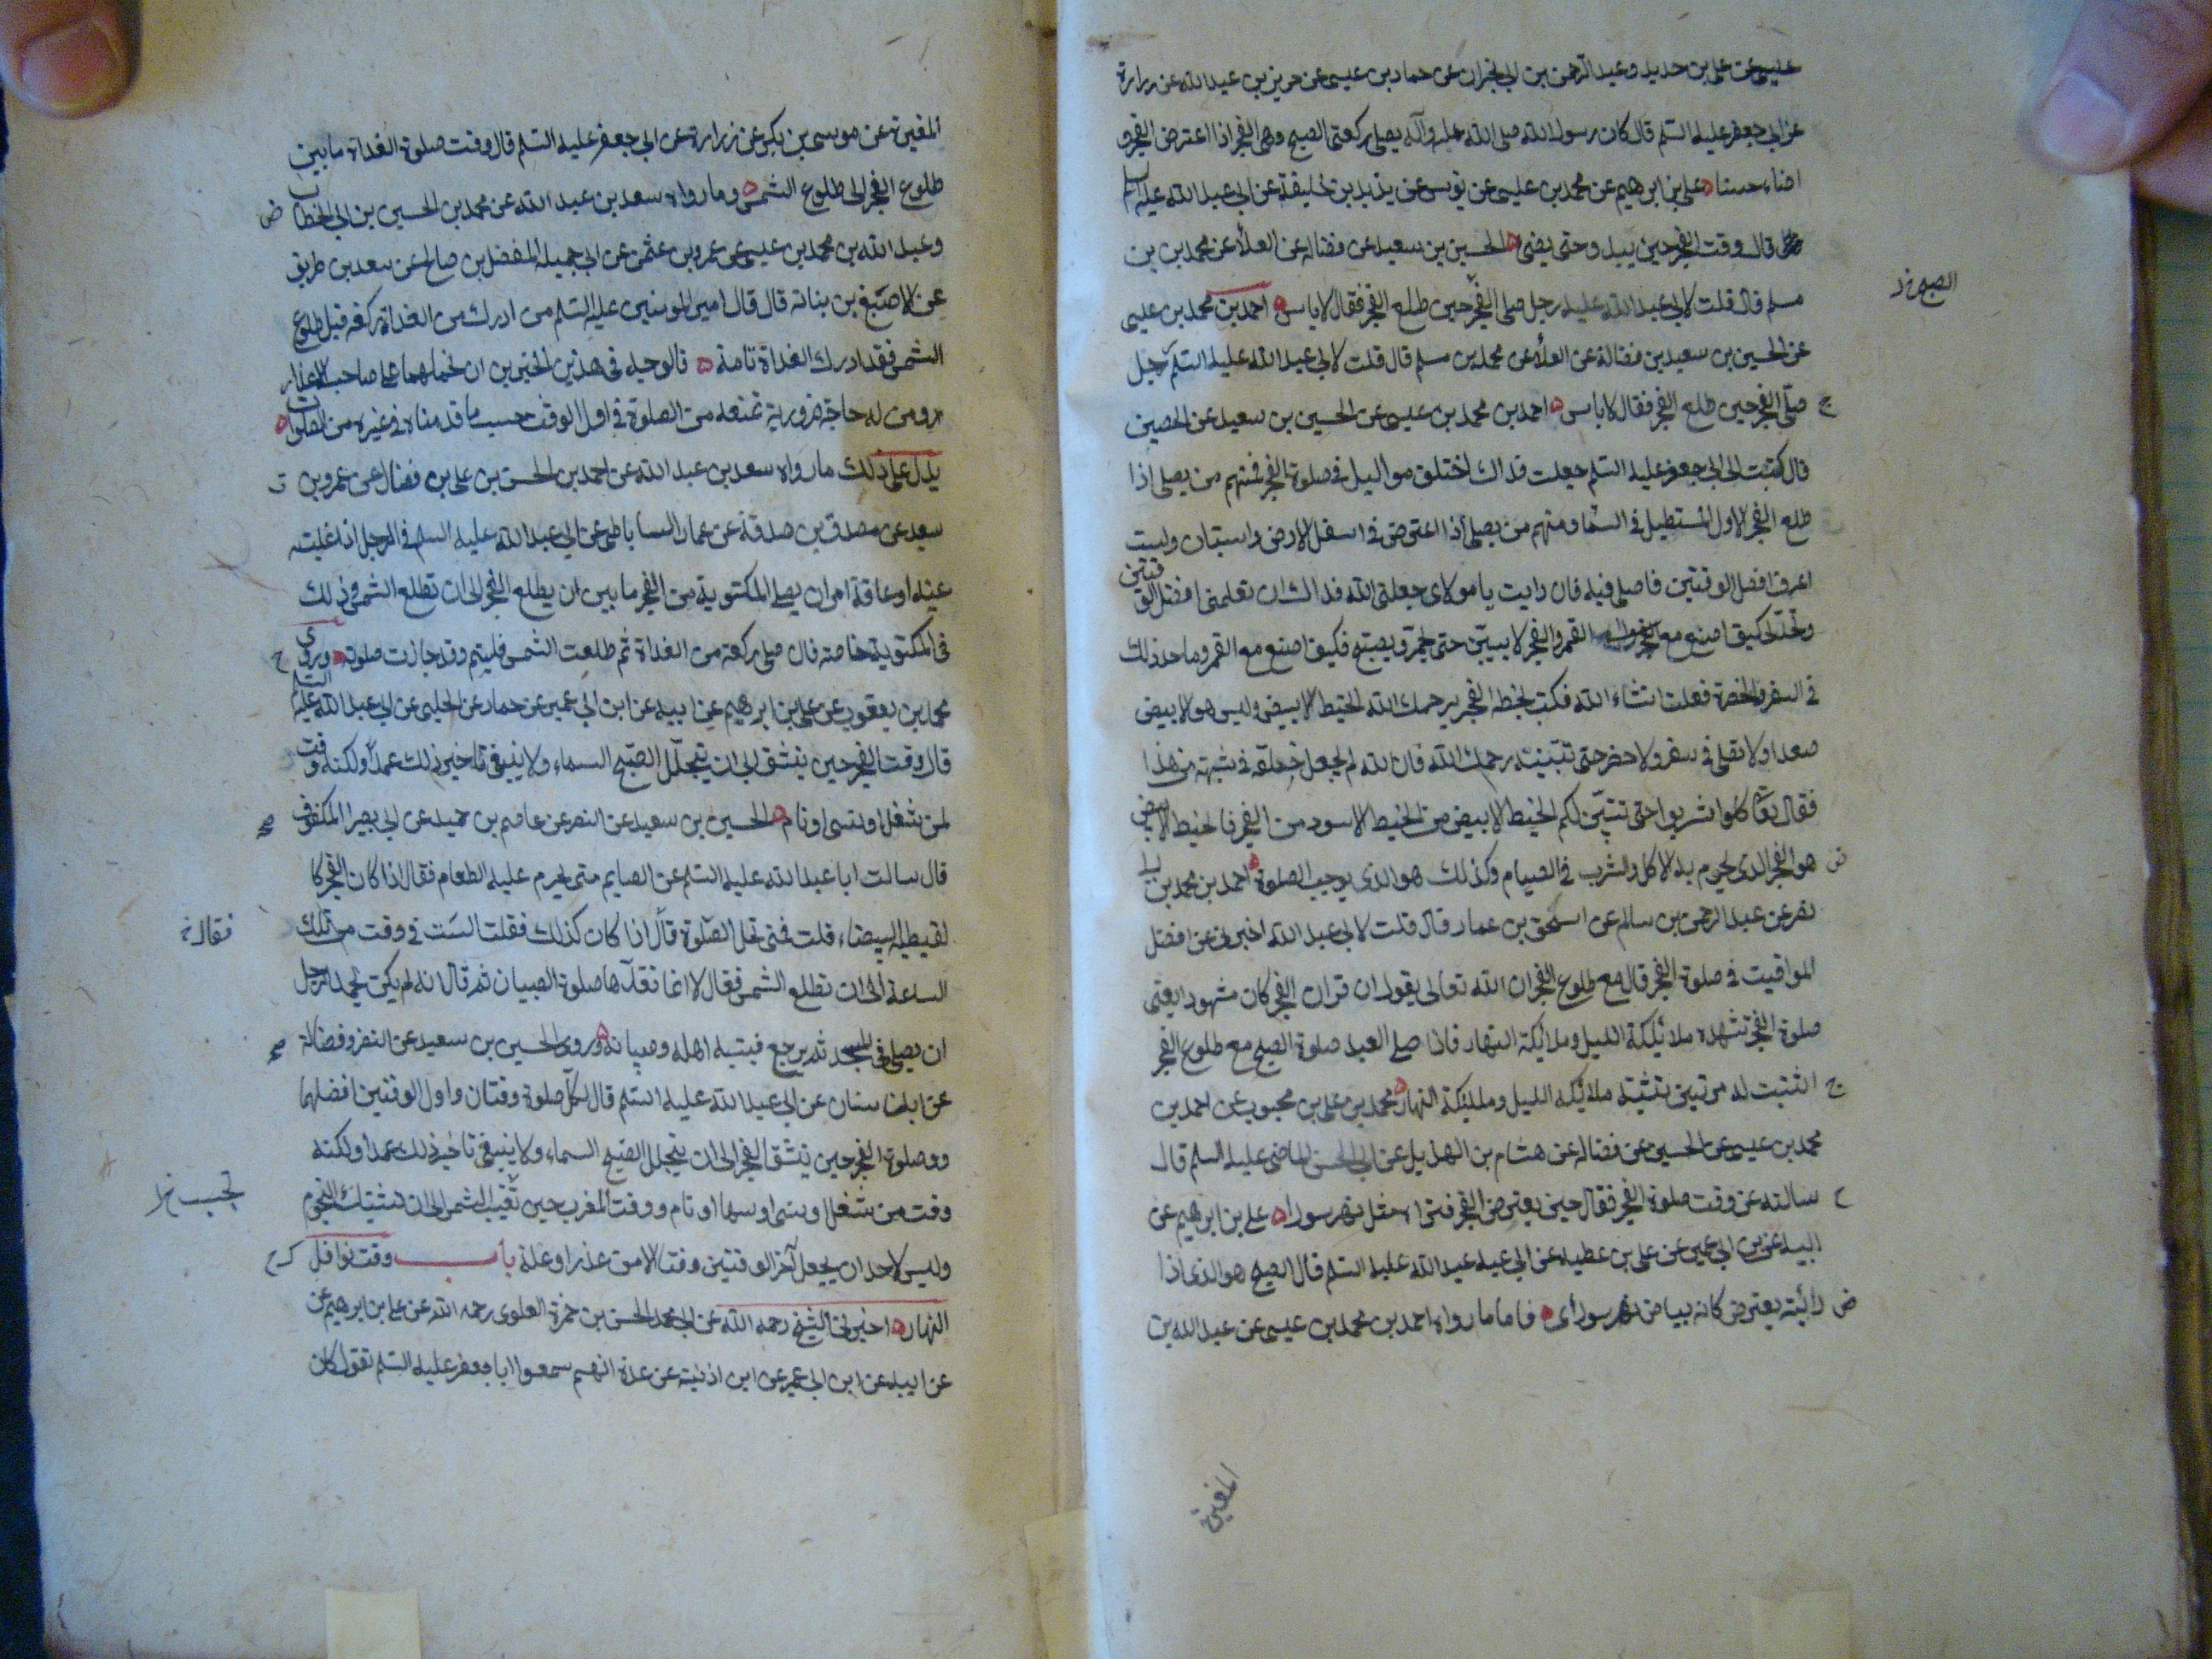 عيسى عن على بن حديد وعبد الرحمن بن ابى نجران عن حماد بن عيسى عن حريز بن عبد الله عن زرارة
عن ابى جعفر عليه السلم قال كان رسول الله صلى الله عليه وآله يصلى ركعتى الصبح وهى الفجر اذا اعترض الفجر و
اضاء حسنا على بن ابرهيم عن محمد بن عيسى عن يونس عن يزيد بن خليفة عن ابى عبد الله عليه السلم
قال وقت الفجر حين يبدو حتى يضئ الحسين بن سعيد عن فضالة عن العلاء عن محمد بن
مسلم قال قلت لابى عبد الله عليه رجل صلى الفجر حين طلع الفجر فقال لا باس احمد بن محمد بن عيسى
الصبح
عن الحسين بن سعيد بن فضالة عن العلاء عن محمد بن مسلم قال قلت لابى عبد الله عليه السلم رجل
صلى الفجر حين طلع الفجر فقال لا باس احمد بن محمد بن عيسى عن الحسين بن سعيد عن الحصين
قال كتبت الى ابى جعفر عليه السلم جعلت فداك اختلق مواليك فى صلوة الفجر فمنهم من يصلى اذا
طلع الفجر الاول المستطيل فى السما ومنهم من يصلى اذا اعترض فى اسفل الارض واستبان ولست
اعرف افضل الوقتين فاصلى فيه فان رايت يا مولاى جعلنى الله فداك ان تعلمنى افضل الوقتين
وتحد لى كيف اصنع مع القمر والفجر لا يبين حتى يحمر ويصبح فكيف اصنع مع القمر وما حد ذلك
فى السفر والحضر فعلت انشاء الله فكتب بخطه الفجر يرحمك الله الخيط الابيض وليس هو الابيض
صعدا ولا تصلى فى سفر ولا حضر حتى تتبينه رحمك الله فان الله لم يجعل خلقه فى شبهة من هذا
فقال تعا كلوا اشربوا حتى تتبين لكم الخيط الابيض من الخيط الاسود من الفجر فالخيط الابيض
هو الفجر الذى يحرم به الاكل والشرب فى الصيام وكذلك هو الذى يوجب الصلوة احمد بن محمد بن ابى
نصر عن عبد الرحمن بن سالم عن اسحق بن عمار قال قلت لابى عبد الله اخبرنى عن افضل
المواقيت فى صلوة الفجر قال مع طلوع الفجر ان الله تعالى يقول ان قران الفجر كان مشهودا يعنى
صلوة الفجر تشهده ملائكة الليل وملائكة النهار فاذا صلى العبد صلوة الصبح مع طلوع الفجر
اثبتت له مرتين تثبته ملائكه الليل وملائكة النهار محمد بن على بن محبوب عن احمد بن
محمد بن عيسى عن الحسين عن فضالة عن هشام بن الهذيل عن ابى الحسن الماضى عليه السلم قال
سالته عن وقت صلوة الفجر فقال حين يعترض الفجر فتراه مثل نهر سورا على بن ابرهيم عن
ابيه عن بن ابى عمير عن على بن عطيه عن ابى عبد الله عليه السلم قال الصبح هو الذى اذا
رائيته يعترض كانه بياض نهر سوراى فاما ما رواه احمد بن محمد بن عيسى عن عبد الله بن
المغيرة
المغيرة عن موسى بن بكر عن زرارة عن ابى جعفر عليه السلم قال وقت صلوة الغداة ما بين
طلوع الفجر الى طلوع الشمس وما رواه سعد بن عبد الله عن محمد بن الحسين بن ابى الخطاب
وعبد الله بن محمد بن عيسى عن عمرو بن عثمن عن ابى جميلة المفضل بن صالح عن سعد بن طريف
عن الاصبغ بن بناته قال قال امير المومنين عليه السلم من ادرك من الغداة ركعة قبل طلوع
الشمس فقد ادرك الغداة تامة فالوجه فى هذين الخبرين ان نحملهما على صاحب الاعذار
ومن له حاجة ضرورية تمنعه من الصلوة فى اول الوقت حسب ما قدمناه فى غيره من الصلوات
يدل على ذلك ما رواه سعد بن عبد الله عن احمد بن الحسن بن على بن فضال عن عمرو بن
سعيد عن مصدق بن صدقة عن عمار الساباطى عن ابى عبد الله عليه السلم فى الرجل اذا غلبته
عينه او عاقة امر ان يصلى المكتوبة من الفجر ما بين ان يطلع الفجر الى ان تطلع الشمس وذلك
فى المكتوبة خاصة فان صلى ركعة من الغداة ثم طلعت الشمس فليتم وقد جازت صلوته وروى
محمد بن يعقوب عن على بن ابرهيم عن ابيه عن ابن ابى عمير عن حماد عن الحلبى عن ابى عبد الله عليه السلم
قال وقت الفجر حين ينشق الى ان يتجلل الصبح السماء ولا ينبغى تاخير ذلك عمدا ولكنه وقت
لمن شغل او نسى او نام الحسين بن سعيد عن النضر عن عاصم بن حميد عن ابى بصير المكفوف
قال سالت ابا عبد الله عليه السلم عن الصايم متى يحرم عليه الطعام فقال اذا كان الفجر كا
لقبطية البيضاء قلت فمتى تحل الصلوة قال اذا كان كذلك فقلت الست فى وقت من تلك
فقال
الساعة الى ان تطلع الشمس فقال لا انما نعدها صلوة الصبيان ثم قال انه لم يكن يحمد الرجل
ان يصلى فى المسجد ثم يرجع فينبه اهله وصبيانه وروى الحسين بن سعيد عن النضر وفضالة
عن ابن سنان عن ابى عبد الله عليه السلم قال لكل صلوة وقتان واول الوقتين افضلهما
ووصلوة الفجر حين ينشق الفجر الى ان يتجلل الصبح السماء ولا ينبغى تاخير ذلك عمدا ولكنه
وقت من شغل او نسى او سها او نام ووقت المغرب حين تغيب الشمس الى ان تشتبك النجوم
تجب
وليس لاحد ان يجعل آخر الوقتين وقتا الا من عذر او علة باب وقت نوافل
النهار اخبرنى الشيخ رحمه الله عن ابى محمد الحسن بن حمزة العلوى رحمه الله عن على بن ابرهيم عن
عن ابيه عن ابن ابى عمير عن ابن اذينة عن عدة انهم سمعوا ابا جعفر عليه السلم يقول كان